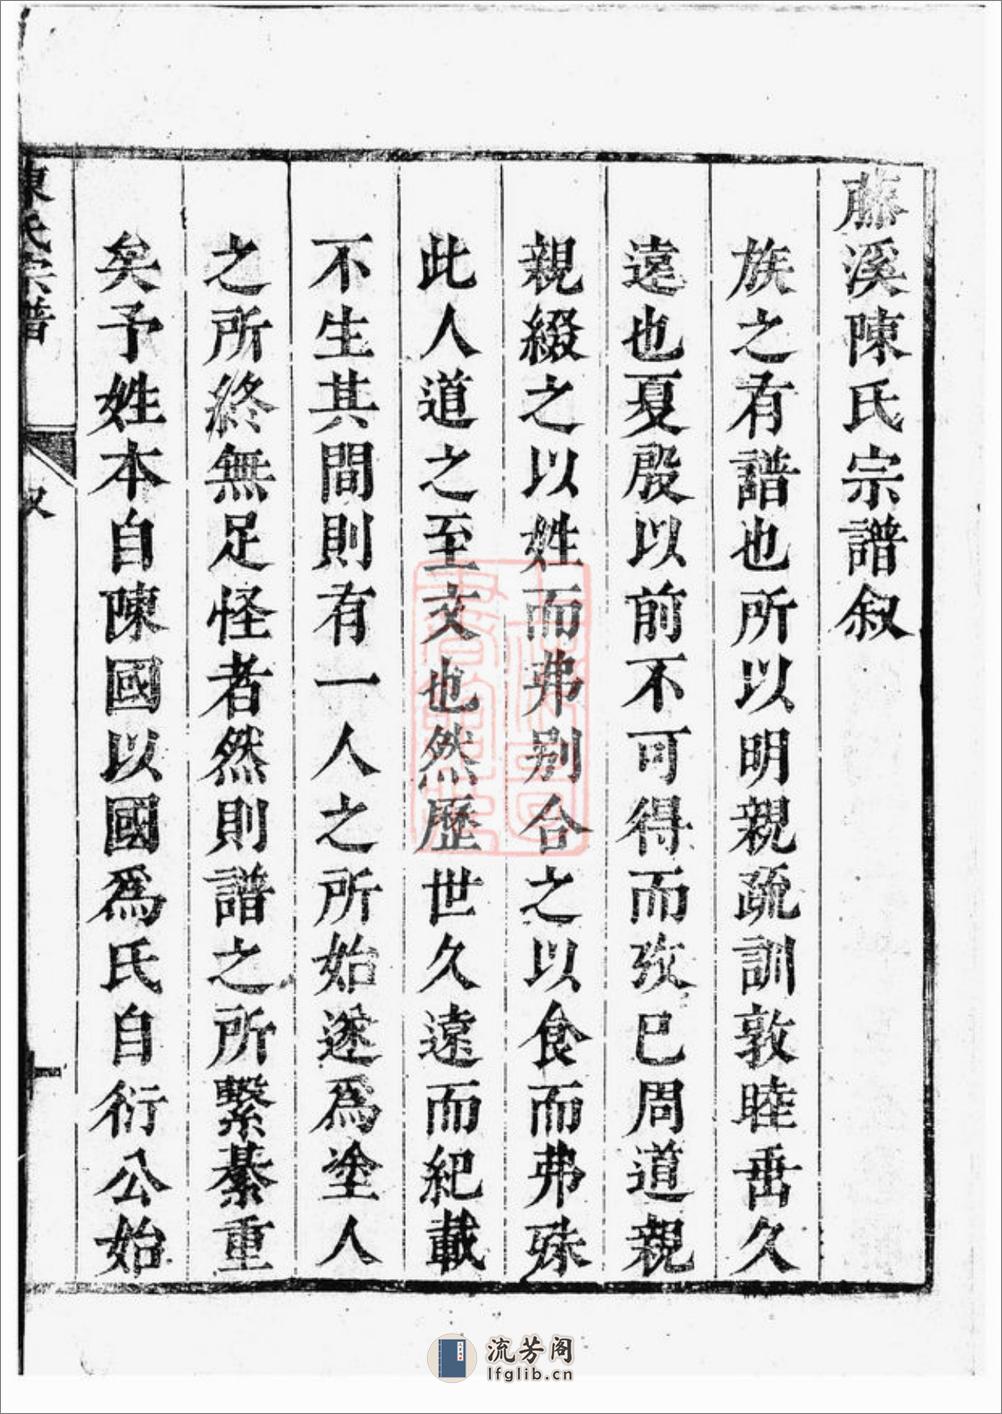 藤溪陳氏宗譜叙
族之有譜也所以明親疏訓敦睦垂久
遠也夏殷以前不可得而攷已周道親
親綴之以姓而弗别合之以食而弗殊
此人道之至文也然歷世久遠而紀載
不生其間則有一人之所始遂爲塗人
之所終無足怪者然則譜之所繫綦重
矣予姓本自陳國以國爲氏自衍公始
陳氏宗譜
叙
十
流芳阁
lfglib.cn